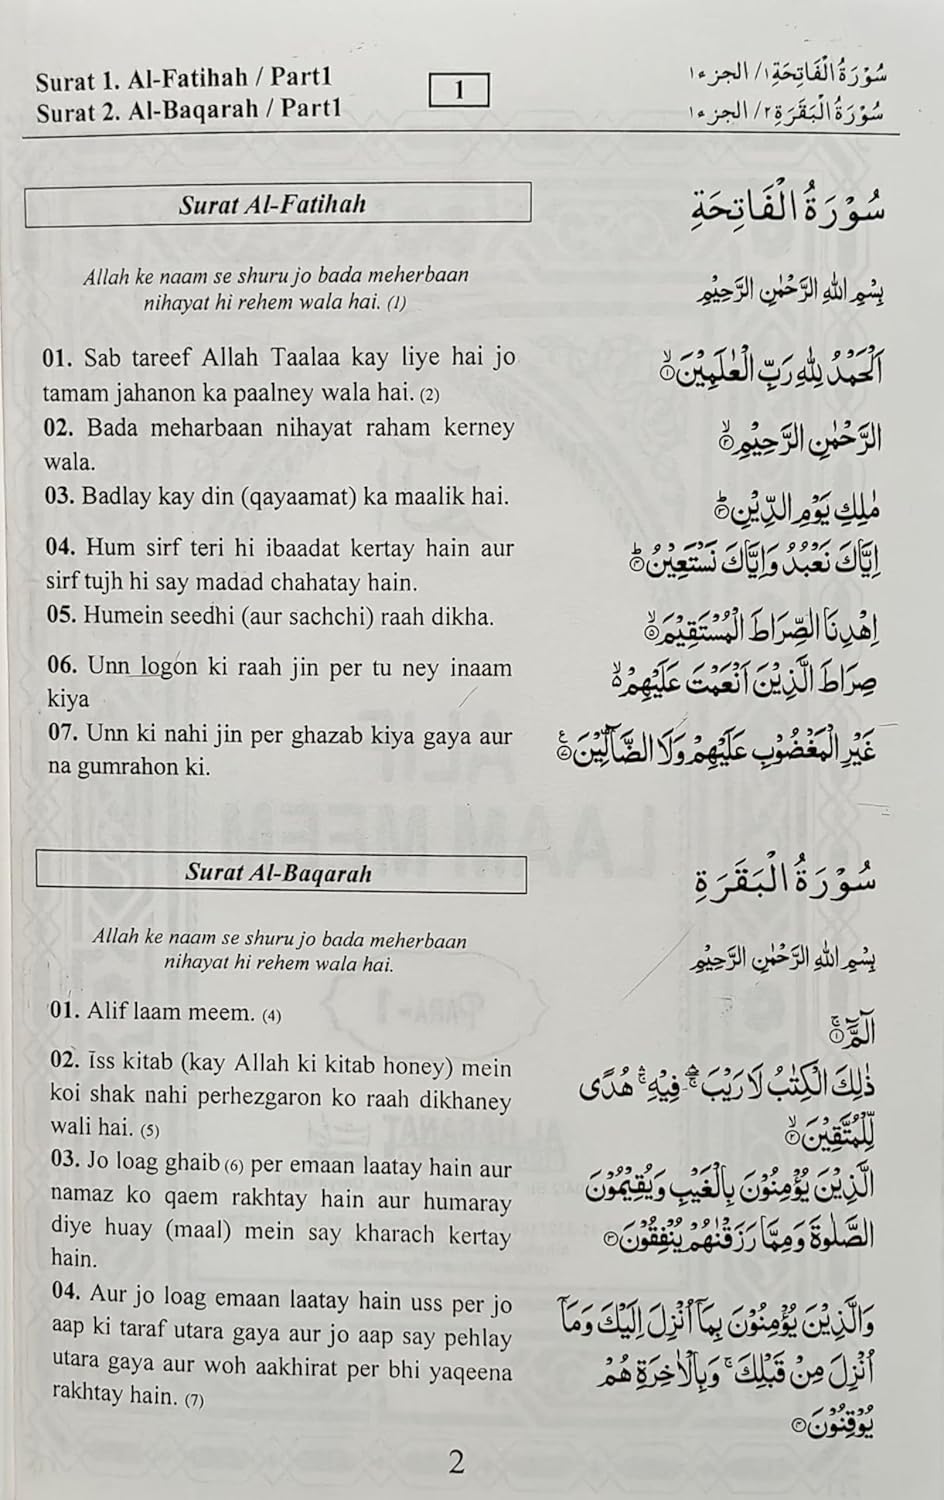 Surat 1. Al-Fatihah / Part1
Surat 2. Al-Baqarah / Part1
1
سُوْرَةُ الْفَاتِحَةِ ١ / الجزء ١
سُوْرَةُ الْبَقَرَةِ ٢ / الجزء ١
Surat Al-Fatihah
سُوْرَةُ الْفَاتِحَةِ
Allah ke naam se shuru jo bada meherbaan
nihayat hi rehem wala hai. (1)
بِسْمِ اللهِ الرَّحْمٰنِ الرَّحِيْمِ
01. Sab tareef Allah Taalaa kay liye hai jo
tamam jahanon ka paalney wala hai. (2)
اَلْحَمْدُ لِلّٰهِ رَبِّ الْعٰلَمِيْنَ ۙ‏﴿۱﴾
02. Bada meharbaan nihayat raham kerney
wala.
الرَّحْمٰنِ الرَّحِيْمِ ۙ‏﴿۲﴾
03. Badlay kay din (qayaamat) ka maalik hai.
مٰلِكِ يَوْمِ الدِّيْنِ ؕ‏﴿۳﴾
04. Hum sirf teri hi ibaadat kertay hain aur
sirf tujh hi say madad chahatay hain.
اِيَّاكَ نَعْبُدُ وَاِيَّاكَ نَسْتَعِيْنُ ؕ‏﴿۴﴾
05. Humein seedhi (aur sachchi) raah dikha.
اِهْدِنَا الصِّرَاطَ الْمُسْتَقِيْمَ ۙ‏﴿۵﴾
06. Unn logon ki raah jin per tu ney inaam
kiya
صِرَاطَ الَّذِيْنَ اَنْعَمْتَ عَلَيْهِمْ ۙ‏﴿۶﴾
07. Unn ki nahi jin per ghazab kiya gaya aur
na gumrahon ki.
غَيْرِ الْمَغْضُوْبِ عَلَيْهِمْ وَلَا الضَّآلِّيْنَ ‏﴿۷﴾
Surat Al-Baqarah
سُوْرَةُ الْبَقَرَةِ
Allah ke naam se shuru jo bada meherbaan
nihayat hi rehem wala hai.
بِسْمِ اللهِ الرَّحْمٰنِ الرَّحِيْمِ
01. Alif laam meem. (4)
الٓمّٓ ۚ‏﴿۱﴾
02. Iss kitab (kay Allah ki kitab honey) mein
koi shak nahi perhezgaron ko raah dikhaney
wali hai. (5)
ذٰلِكَ الْكِتٰبُ لَا رَيْبَ ۛۚ فِيْهِ ۛۚ هُدًى
لِّلْمُتَّقِيْنَ ۙ‏﴿۲﴾
03. Jo loag ghaib (6) per emaan laatay hain aur
namaz ko qaem rakhtay hain aur humaray
diye huay (maal) mein say kharach kertay
hain.
الَّذِيْنَ يُؤْمِنُوْنَ بِالْغَيْبِ وَيُقِيْمُوْنَ
الصَّلٰوةَ وَمِمَّا رَزَقْنٰهُمْ يُنْفِقُوْنَ ‏﴿۳﴾
04. Aur jo loag emaan laatay hain uss per jo
aap ki taraf utara gaya aur jo aap say pehlay
utara gaya aur woh aakhirat per bhi yaqeena
rakhtay hain. (7)
وَالَّذِيْنَ يُؤْمِنُوْنَ بِمَآ اُنْزِلَ اِلَيْكَ وَمَآ
اُنْزِلَ مِنْ قَبْلِكَ ۚ وَبِالْاٰخِرَةِ هُمْ
يُوْقِنُوْنَ ‏﴿۴﴾
2